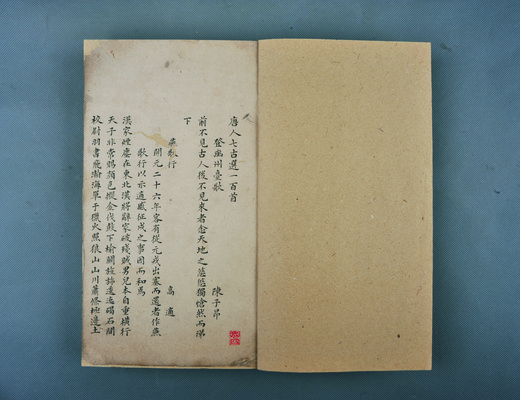 唐人七古選一百首
登幽州臺歌
陳子昂
前不見古人後不見來者念天地之悠悠獨愴然而涕
下
燕歌行
高適
開元二十六年客有從元戎出塞而還者作燕
歌行以示適感征戍之事因而和焉
漢家煙塵在東北漢將辭家破殘賊男兒本自重橫行
天子非常賜顏色摐金伐鼓下榆關旌旆逶迤碣石間
校尉羽書飛瀚海單于獵火照狼山山川蕭條極邊土